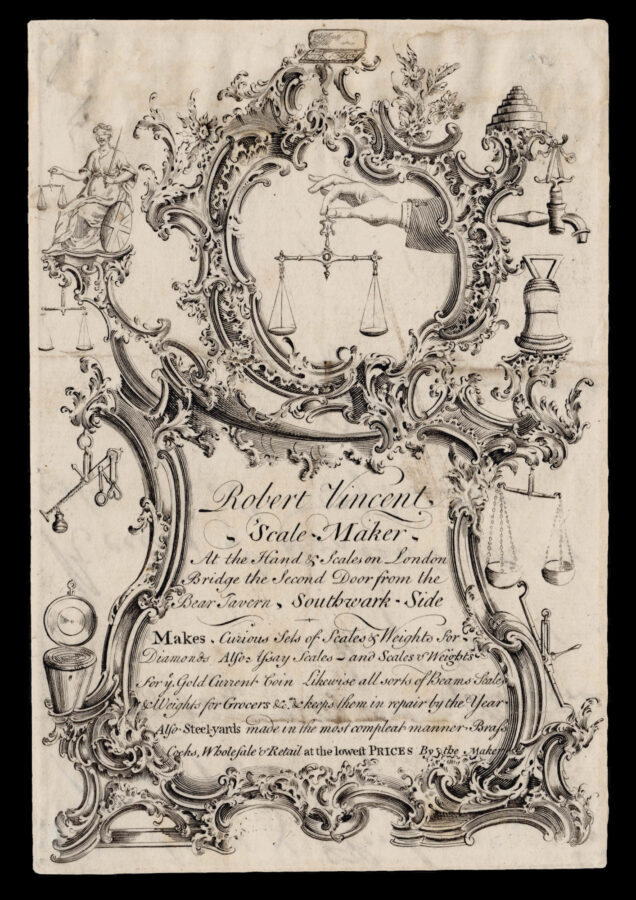 Robert Vincent,
Scale-Maker
At the Hand & Scales on London
Bridge the Second Door from the
Bear Tavern, Southwark-Side
Makes, Curious Sets of Scales & Weights for
Diamonds Also Assay Scales - and Scales & Weights
for yͤ Gold Current Coin Likewise all sorts of Beams Scales
& Weights for Grocers &c. & keeps them in repair by the Year
Also Steel-yards made in the most compleat manner Brass
Cocks, Wholesale & Retail at the lowest PRICES By the Maker